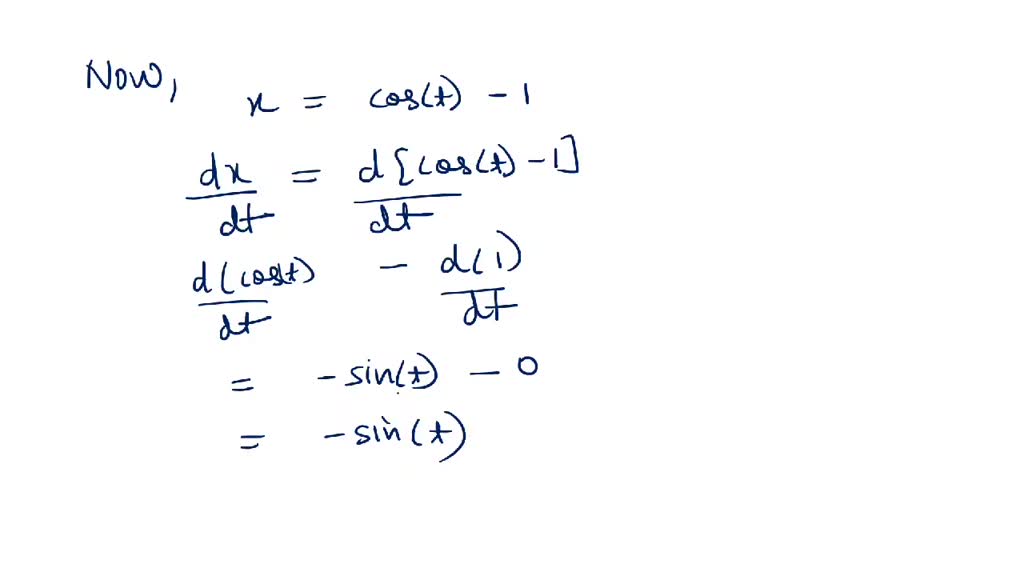 Now,
x = cos(t) - 1
dx/dt = d[cos(t) - 1]/dt
d(cost)/dt - d(1)/dt
= - sin(t) - 0
= - sin(t)